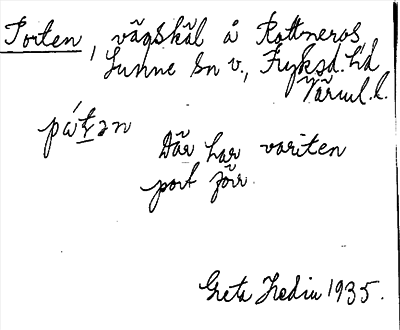 Porten, vägskäl å Rottneros
Sunne sn v., Fryksd. hd
Värml. l.
pá't̠ən
Där har variten
port förr.
Greta Hedin 1935.